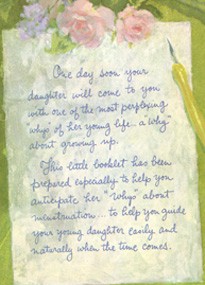 One day soon your
daughter will come to you
with one of the most perplexing
whys of her young life... a "why"
about growing up.
This little booklet has been
prepared especially to help you
anticipate her "whys" about
menstruation... to help you guide
your young daughter easily and
naturally when the time comes.